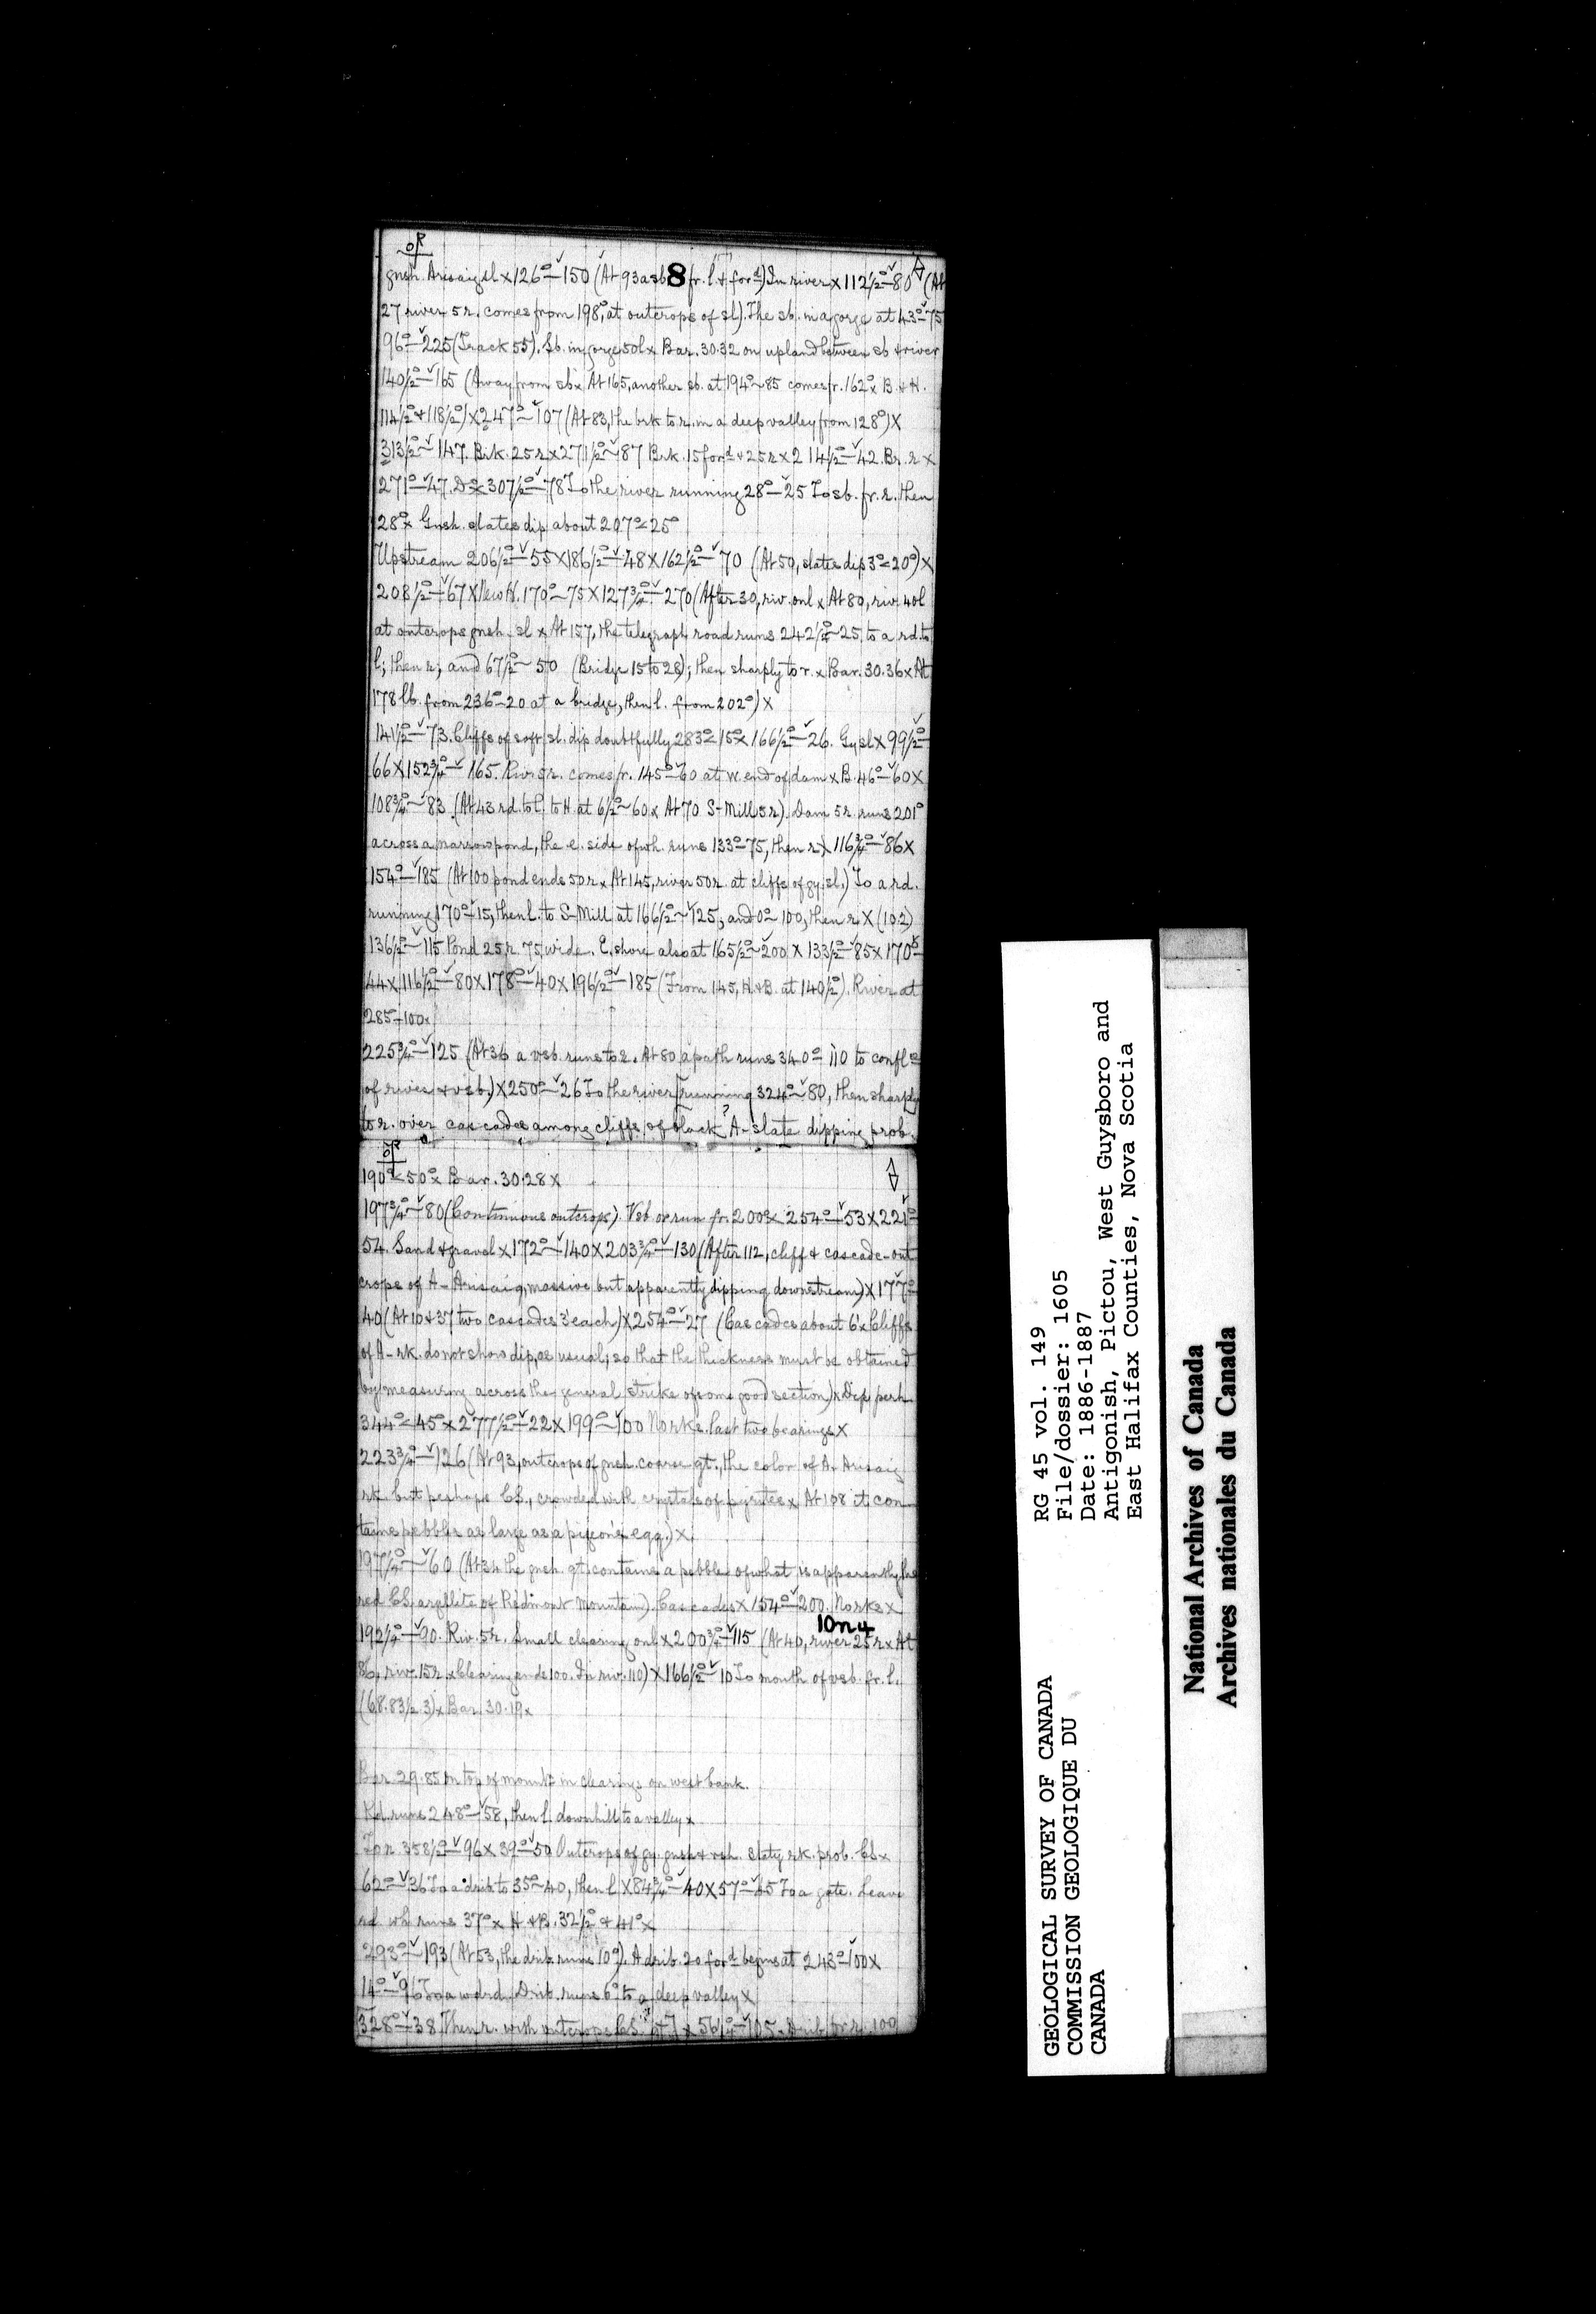 gnsh. Arisaig sl x 126°—150 (At 93 a sb 8 fr. l. & for^d) In river x 112½°—80 (At
27 river 5 r. comes from 198°, at outcrops of sl). The sb. in a gorge at 43°—75
96°—225 (Track 55). Sb. in gorge 50 l x Bar. 30.32 on upland between sb & river
140½°—165 (Away from sb x At 165, another sb. at 194°~85 comes fr. 162° x B & H.
114½° & 118½°) x 247°~107 (At 83, the brk to r. in a deep valley from 128°) X
313½°~147. Brk. 25 r x 271½°~87 Brk. 15 for^d & 25 r x 214½°—42. Br. r x
271°—47. D° x 307½°—78 To the river running 28°—25 To sb. fr. r. then
28° x Gnsh. slates dip about 207°<25°
Upstream 206½°—55 X 186½°—48 X 162½°—70 (At 50, slates dip 3°<20°) X
208½°—67 X New H. 170°~75 X 127¾°—270 (After 30, riv. on l x At 80, riv. 40 l
at outcrops gnsh. sl x At 157, the telegraph road runs 242½°~25, to a rd. to
l; then r; and 67½°~50 (Bridge 15 to 28); then sharply to r. x Bar. 30.36 x At
178 lb. from 236°—20 at a bridge, then l. from 202°) X
141½°—73. Cliffs of soft sl. dip doubtfully 283°<15° x 166½°—26. Gy sl X 99½°—
66 X 152¾°—165. Riv. 5 r. comes fr. 145°—60 at w. end of dam x B. 46°—60 X
108¾°~83 (At 43 rd. to l. to H at 6½°~60 x At 70 S-Mill 5 r). Dam 5 r. runs 201°
across a narrow pond, the e. side of wh. runs 133°—75, then r x 116¾°—86 X
154°—185 (At 100 pond ends 50 r x At 145, river 50 r. at cliffs of gy. sl.) To a rd.
running 170°—15, then l. to S-Mill at 166½°~125; and 0°~100, then r. X (10.2)
136½°~115 Pond 25 r. 75 wide. E. shore also at 165½°~200 X 133½°—85 x 170°—
44 x 116½°—80 x 178°—40 x 196½°—185 (From 145, H & B. at 140½°). River at
285°—100 x
225¾°—125 (At 36 a vsb. runs to r. At 80 a path runs 340°—110 to confl^ce
of river & vsb.) X 250°—26 To the river [running 324°~80, then sharply
to r. over cascades among cliffs of black? A-slate dipping prob.
190°<50° x Bar. 30.28 X
197¾°~80 (Continuous outcrop). Vsb or run fr. 200° x 254°—53 X 221°—
54. Sand & gravel x 172°~140 X 203¾°—130 (After 112, cliff & cascade-out
crops of A-Arisaig, massive but apparently dipping downstream) X 177°—
40 (At 10 & 37 two cascades 3' each) X 254°—27 (Cascades about 6' x Cliffs
of A-rk. do not show dip, as usual; so that the thickness must be obtained
by measuring across the general strike of some good section) x Dip perh.
344°<45° x 277½°—22 x 199°—100 No rks. last two bearings X
223¾°—126 (At 93, outcrops of gnsh. coarse gt., the color of A-Arisaig
rk. but perhaps CS., crowded with crystals of pyrites x At 108 it con
tains pebbles as large as a pigeon's egg.) X
197¼°~60 (At 34 the gnsh. gt. contains a pebble of what is apparently the
red CS. argillite of Piedmont Mountain). Cascades X 154°—200. No rks x
10n4
192¼°—90. Riv. 5 r. Small clearing on l x 200¾°—115 (At 40, river 25 r x At
86, riv. 15 r. x Clearing ends 100. In riv. 110) X 166½°—10 To mouth of vsb. fr. l.
(68.83½.3) x Bar. 30.19 x
Bar. 29.85 on top of mount^n in clearings on west bank.
Rd. runs 248°—58, then l. downhill to a valley x
To r. 358½°—96 X 39°—50 Outcrops of gy. gnsh & rsh. slaty rk. prob. CS x
62°—36 To a drib to 35°—40, then l X 84¾°—40 X 57°—65 To a gate. Leave
rd. wh. runs 37° x H & B. 32½° & 41° x
293°—193 (At 53, the drib. runs 10°). A drib. 20 for^d begins at 243°—100 X
14°—96 To a w. drd. Drib. runs 6° to a deep valley X
GEOLOGICAL SURVEY OF CANADA
COMMISSION GEOLOGIQUE DU
CANADA
RG 45 vol. 149
File/dossier: 1605
Date: 1886-1887
Antigonish, Pictou, West Guysboro and
East Halifax Counties, Nova Scotia
National Archives of Canada
Archives nationales du Canada